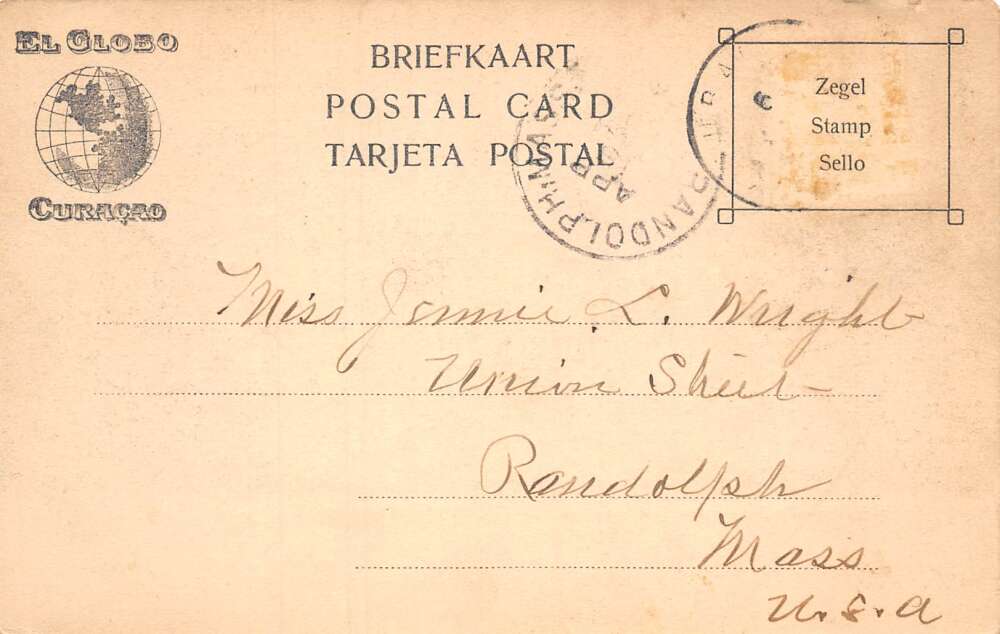 EL GLOBO
CURAÇAO
BRIEFKAART
POSTAL CARD
TARJETA POSTAL
Zegel
Stamp
Sello
RANDOLPH, MASS.
APR
Miss Jennie L. Wright
Union Street
Randolph
Mass
U.S.A